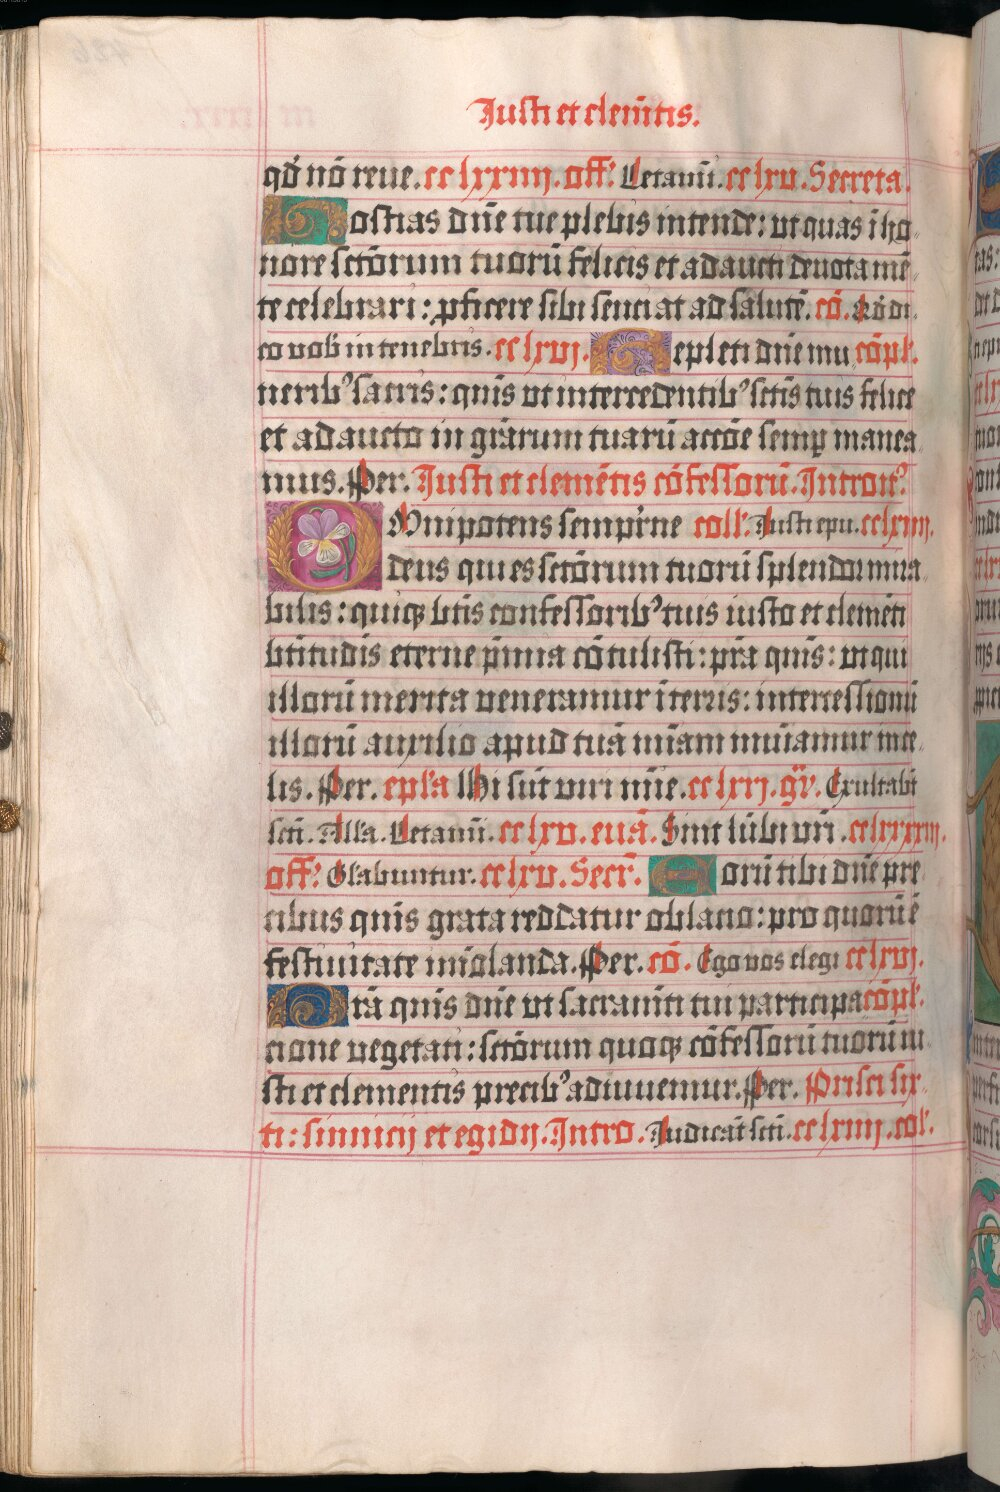 Justi et cleme͂tis.
qd̕ nō reue. cclxxiiij. off̕. Letami͂. cclxv. Secreta.
Hostias dn̄e tue plebis intende: ut quas ī ho
nore sctōrum tuorū felicis et adaucti deuota mē
te celebrari: ꝓficere sibi senciat ad salutē. cō. Qd̕ di
co vob̕ in tenebris. cclxvj. Repleti dn̄e mu cōpl̕.
nerib᾽ sacris: qn̄s ut intercedentib᾽ sct̄is tuis felice
et adaucto in gr̄arum tuarū accōe semꝑ manea
mus. Per. Justi et clemētis cōfessorū. Introit᾽.
OMnipotens semp̕rne coll̕. Justi epu. cclxiiij.
deus qui es sctōrum tuorū splendor mira
bilis: quiqꝫ bt̄is confessorib᾽ tuis iusto et clemēti
bt̄itudīs eterne p̄mia cōtulisti: pr̄a qn̄s: ut qui
illorū merita veneramur ī terris: intercessionū
illorū auxilio apud tuā mi͂am muniamur in ce
lis. Per. epl̕a Hi sūt viri mi͂e. cclxxj. gr̕. Exultabūt
scti. All̕a. Letami͂. cclxv. euā. Sint lūbi vri͂. cclxxxxiij.
off̕. Gl̕abuntur. cclxv. Secr̄. Eorū tibi dn̄e pre
cibus qn̄s grata reddatur oblatio: pro quorū ē
festiuitate īmolanda. Per. cō. Ego vos elegi cclxvj.
Prā qn̄s dn̄e ut sacramēti tui participa cōpl̕.
cione vegetati: sctōrum quoqꝫ cōfessorū tuorū iu
sti et clementis precib᾽ adiuuemur. Per. Prisci six
ti: sinnicij et egidij. Intro. Judicāt scti͂. cclxiiij. col̕.